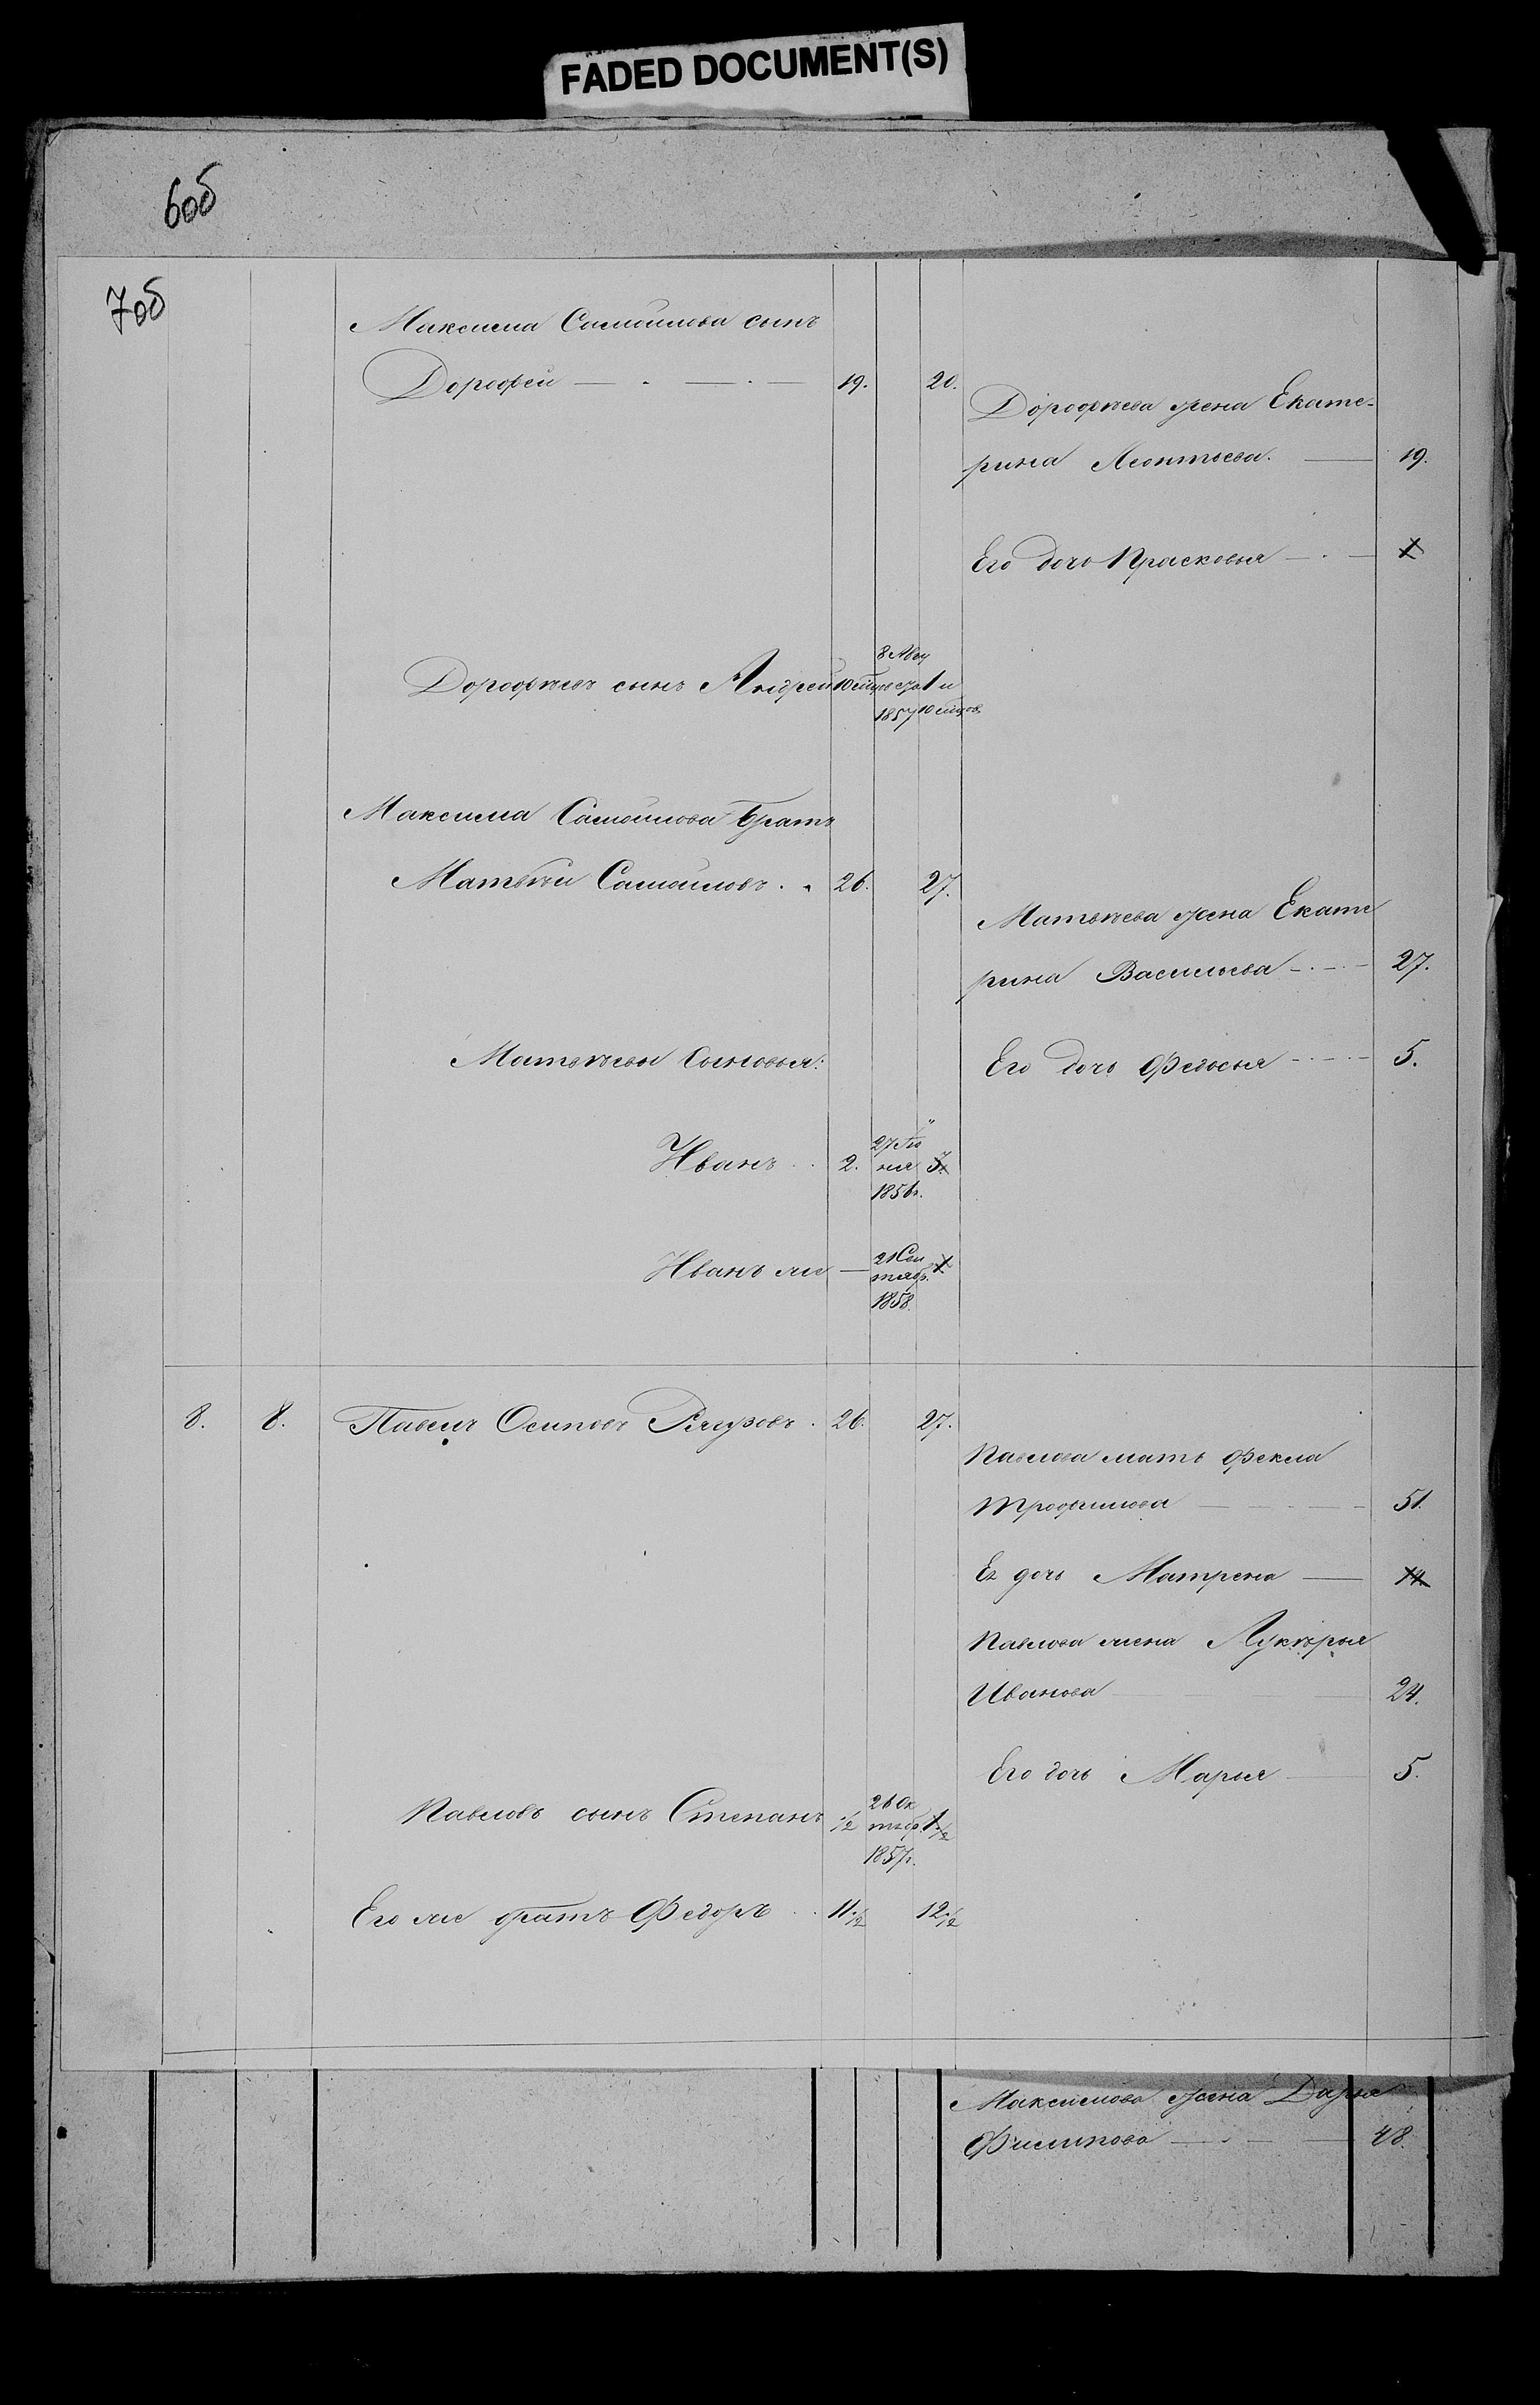 FADED DOCUMENT(S)
6об
7об
Максима Самойлова сынъ
Дорофей 19. 20.
Дорофѣева жена Екате-
рина Леонтьева. 19.
Его дочь Прасковья 1
8 Авгу
Дорофѣевъ сынъ Андрей 10 мцов ста 1 и
1857 10 мцов.
Максима Самойлова братъ
Матвѣй Самойловъ 26. 27.
Матвѣева жена Екате
рина Васильева 27.
Матвѣевы сыновья:
Его дочь Федосья 5.
27 Ію
Иванъ 2. ня 3.
1856г.
21 Сен
Иванъ же тябр. 1
1858.
8. 8. Павелъ Осиповъ 26. 27.
Павлова мать Фекла
Трофимова 51.
Ея дочь Матрена 14.
Павлова жена Лукѣрья
Иванова 24.
Его дочь Марья 5.
26 Ок
Павловъ сынъ Степанъ 1/2 тябр. 1 1/2
1857г.
Его же братъ Федоръ 11 1/2 12 1/2
Максимова жена Дарья
Филипова 48.